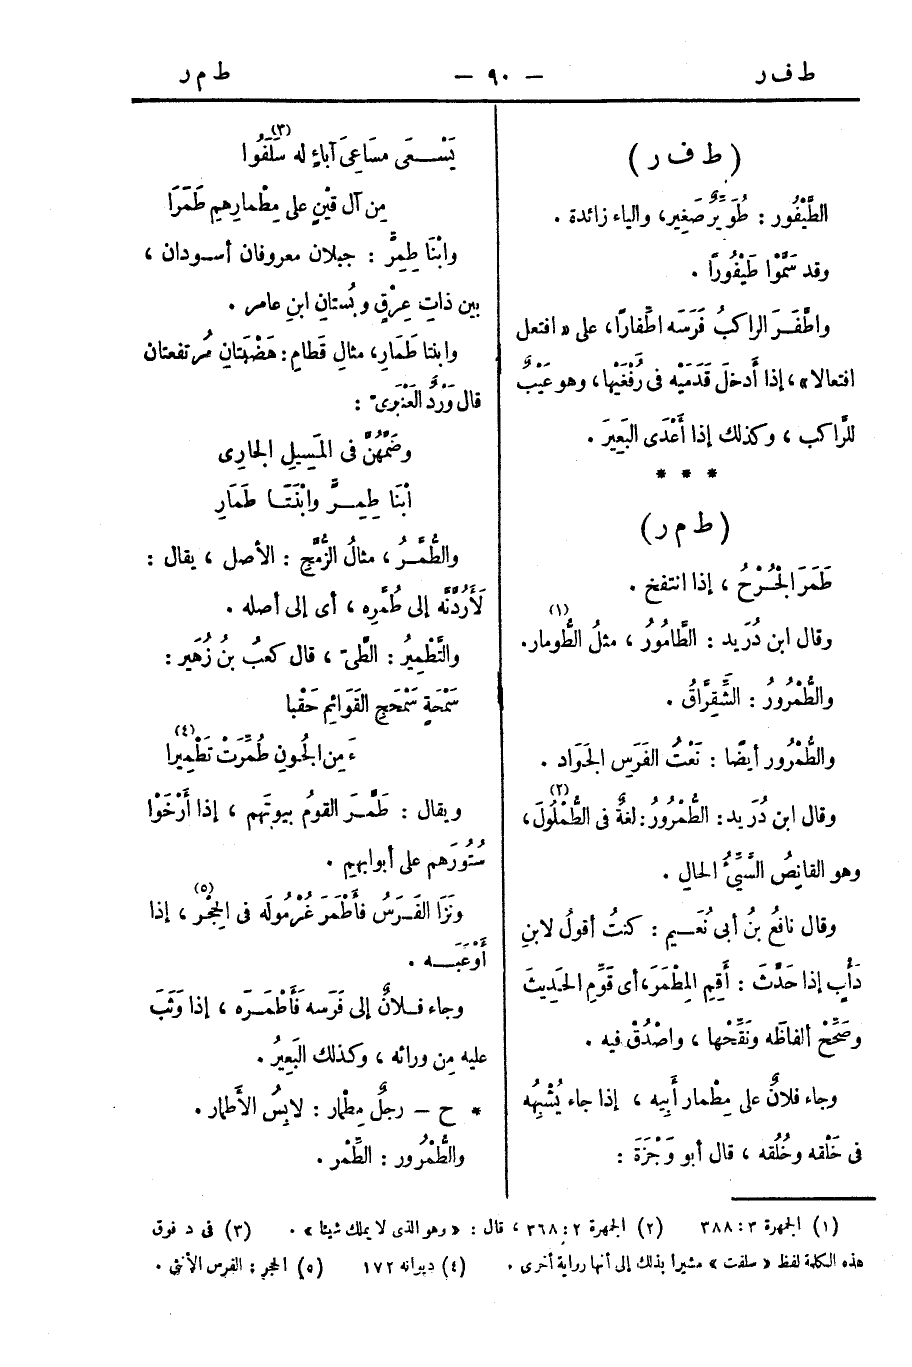 ط ف ر
— ٩٠ —
ط م ر
( ط ف ر )
الطَّيْفُور : طُوَيْرٌ صَغِير، والياء زائدة .
وقد سَمَّوْا طَيْفُورًا .
واطَّفَرَ الراكبُ فَرَسَه اطِّفارًا، على « افتعل
افتعالا » ، إذا أَدخلَ قَدَمَيْه فى رُفْغَيْها ، وهو عَيْبٌ
للرَّاكب ، وكذلك إذا أَعْدَى البَعِيرَ .
* * *
( ط م ر )
طَمَرَ الجُرْحُ ، إذا انتفخ .
وقال ابن دُرَيد : الطَّامُورُ ، مثلُ الطُّومار. (١)
والطُّمْرُورُ : الشَّقِرَّاقُ .
والطُّمْرُور أيضًا : نَعْتُ الفَرَسِ الجَوَاد .
وقال ابن دُرَيد : الطُّمْرُورُ : لغةٌ فى الطُّمْلُولَ (٢) ،
وهو القانِصُ السَّيِّئُ الحالِ .
وقال نافعُ بنُ أبى نُعَـيم : كنتُ أقولُ لابنِ
دَأْبٍ إذا حَدَّثَ : أَقِمِ المِطْمَرَ، أى قَوِّمِ الحَدِيثَ
وصَحِّحْ ألفاظَه ونَقِّحْها ، واصْدُقْ فيه .
وجاء فلانٌ على مِطْمار أَبِيه ، إذا جاء يُشْبِهُه
فى خَلْقه وخُلُقه ، قال أبو وَجْزَةَ :
يَسْـعَى مسَاعِىَ آباءٍ له سَلَفُوا (٣)
مِن آل قَيْنٍ على مِطْمارِهِم طَمَرَا
وابْنَا طِمِرٍّ : جبلان معروفان أسـودان ،
بين ذاتِ عِرْقٍ وبُستانِ ابنِ عامر .
وابنتا طَمَارِ، مثالِ قَطامِ : هَضْبَتانِ مُرتفعتان
قال وَرْدٌ العَنْبَرِىّ :
وضَمَّهُنَّ فى المَسِيلِ الجارِى
ابْنَا طِمِـرٍّ وابْنَتَـا طَمَارِ
والطُّمَّـرُ ، مثالُ الزُّمَّجِ : الأصل ، يقال :
لَأَرُدَّنَّه إلى طُمَّرِه ، أى إلى أصله .
والتَّطْمِيرُ : الطَّىّ ، قال كعبُ بنُ زُهَير :
سَمْحَةٍ سَمْحَجِ القَوَائمِ حَقْبا
ءَ مِن الجُونِ طُمِّرَتْ تَطْمِيرا (٤)
ويقال : طَمَّـرَ القومُ بيوتَهم ، إذا أَرْخَوْا
سُتُورَهم على أبوابِهِم .
ونَزَا الفَـرَسُ فأَطْمَرَ غُرْمُولَه فى الحِجْر (٥) ، إذا
أَوْعَبَـه .
وجاء فـلانٌ إلى فَرَسه فَأَطْمَـرَه ، إذا وَثَبَ
عليه مِن ورائه ، وكذلك البَعِيرُ .
* ح — رجلٌ مِطْمار : لابِسُ الأَطْمار .
والطُّمْرُور : الطِّمْر .
(١) الجمهرة ٣ : ٣٨٨ (٢) الجمهرة ٢ : ٣٦٨ ، قال : « وهو الذى لا يملك شيئا » . (٣) فى د فوق
هذه الكلمة لفظ « سلفت » مشيرا بذلك إلى أنها رواية أخرى . (٤) ديوانه ١٧٢ (٥) الحجر : الفرس الأنثى .